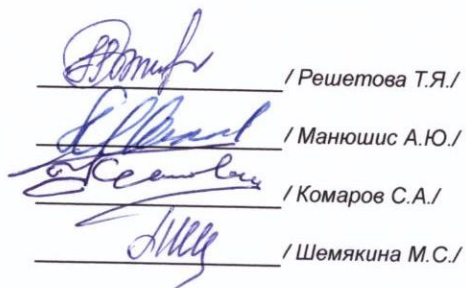 / Решетова Т.Я./
/ Манюшис А.Ю./
/ Комаров С.А./
/ Шемякина М.С./